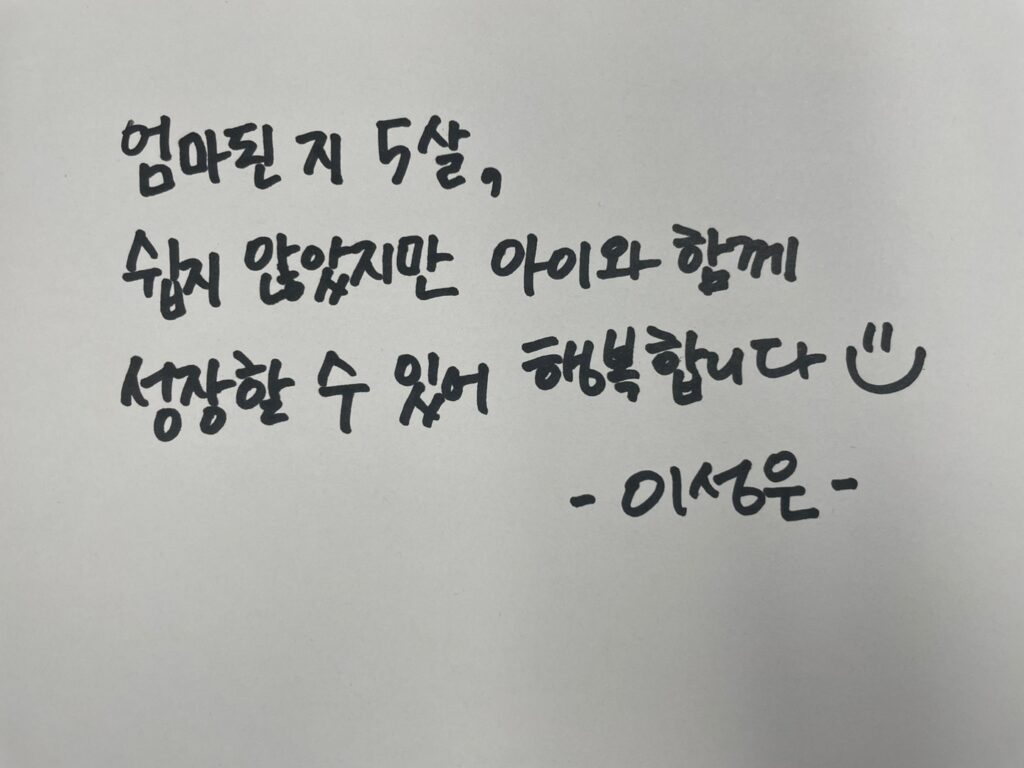 엄마된 지 5살,
쉽지 않았지만 아이와 함께
성장할 수 있어 행복합니다
- 이성은 -